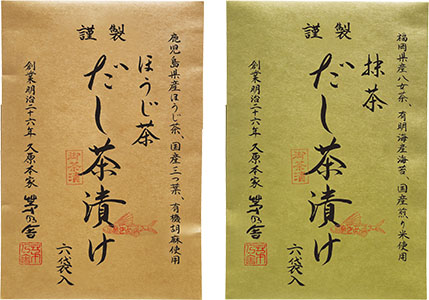 謹製
鹿児島県産ほうじ茶、国産三つ葉、有機胡麻使用
ほうじ茶
だし茶漬け
御茶漬
六袋入
創業明治二十六年 久原本家 茅乃舎
謹製
福岡県産八女茶、有明海産海苔、国産煎り米使用
抹茶
だし茶漬け
御茶漬
六袋入
創業明治二十六年 久原本家 茅乃舎